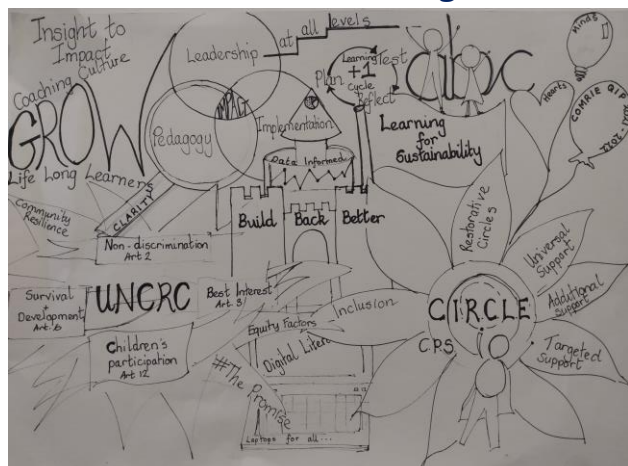 Insight to
Impact
Coaching Culture
GROW
Life Long Learners
Leadership
at all levels
Pedagogy
IMPACT
Implementation
CLARITY
Learning
+1
cycle
Plan
Test
Reflect
abc
Learning
for
Sustainability
Hearts
Minds
COMRIE QIP
Data Informed
Build Back Better
Community
Resilience
Non-discrimination
Art 2
UNCRC
Survival
Development
Art. 6
Best Interest
Art. 3
Children's
participation
Art 12
#The Promise
Equity Factors
Digital
Laptops for all...
Inclusion
Restorative
Circles
Universal
Support
Additional
Support
Targeted
Support
CIRCLE
C.P.S